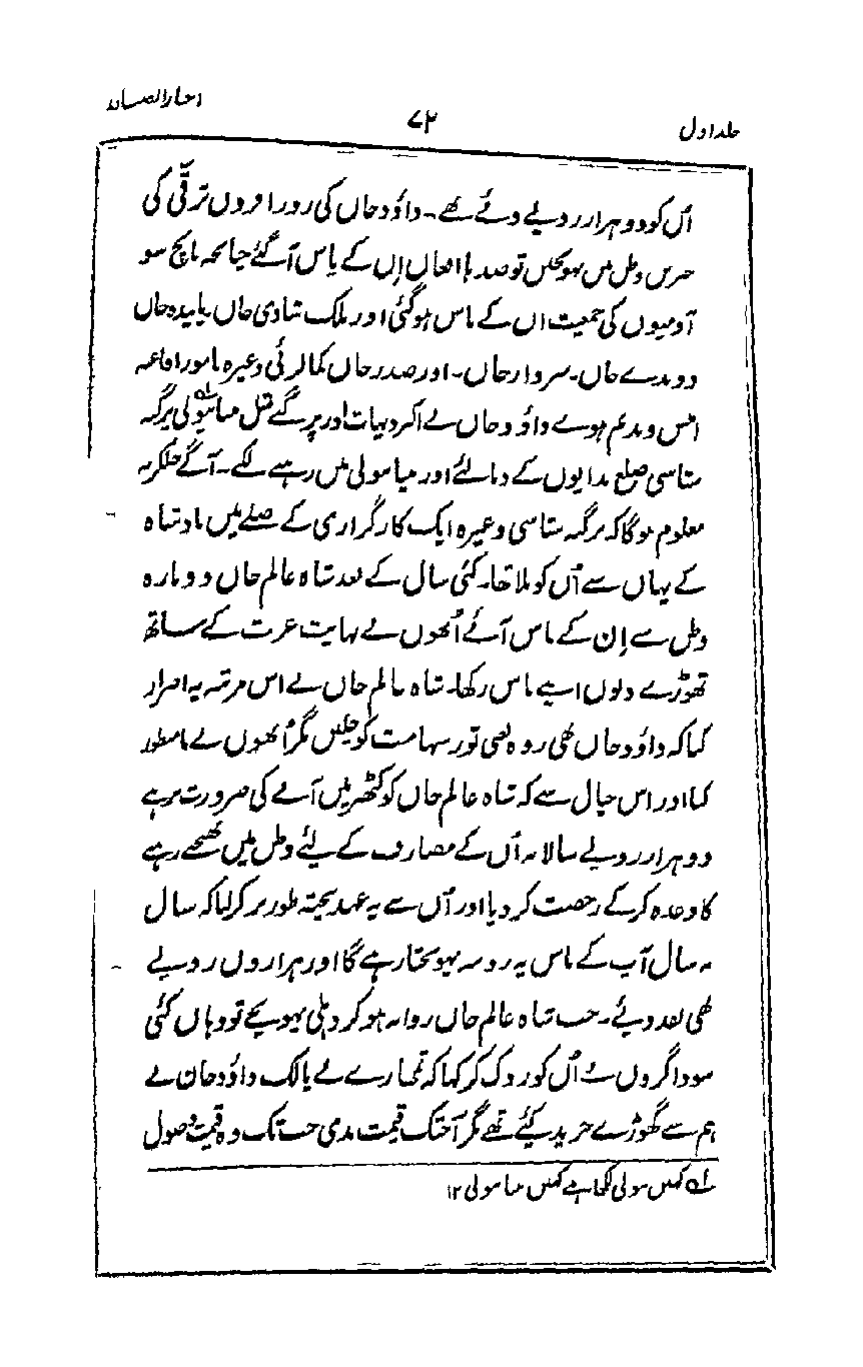 اخبارالصنادید
۷۲
جلد اول
اُن کو دو ہزار روپے دئے تھے۔ داؤد خاں کی روز افزوں ترقّی کی
خبریں وطن میں پہونچیں تو صدہا افغان اِن کے پاس آگئے چنانچہ پانچ سو
آدمیوں کی جمعیت اُن کے پاس ہوگئی اور ملک شادی خاں پایندہ خاں
دوندے خاں۔ سردار خاں۔ اور صدر خاں کمالزئی وغیرہ نامور افاغنہ
انیس و ندیم ہوے داؤد خاں نے اکثر دیہات اور پرگے مثل میانولی پرگنہ
ستاسی ضلع بدایوں کے دبا لئے اور میانولی میں رہنے لگے۔ آگے چلکر یہ
معلوم ہوگا کہ پرگنہ ستاسی وغیرہ ایک کارگزاری کے صلے میں بادشاہ
کے یہاں سے اُن کو ملا تھا۔ کئی سال کے بعد شاہ عالم خاں دوبارہ
وطن سے اِن کے پاس آئے اُنھوں نے نہایت عزت کے ساتھ
تھوڑے دنوں اپنے پاس رکھا۔ شاہ عالم خاں نے اس مرتبہ یہ اصرار
کیا کہ داؤد خاں بھی روہ یعنی تور شہامت کو چلیں مگر اُنھوں نے نامنظور
کیا اور اس خیال سے کہ شاہ عالم خاں کو کٹھیر میں آنے کی ضرورت نرہے
دو ہزار روپے سالانہ اُن کے مصارف کے لیئے وطن میں بھیجتے رہنے
کا وعدہ کرکے رخصت کردیا اور اُن سے یہ عہد پختہ طور پر کرلیا کہ سال
بہ سال آپ کے پاس یہ روپیہ پہونچتا رہے گا اور ہزاروں روپے
بھی نقد دیئے۔ جب شاہ عالم خاں روانہ ہوکر دہلی پہونچے تو وہاں کئی
سوداگروں نے اُن کو روک کر کہا کہ تمہارے لے پالک داؤد خان نے
ہم سے گھوڑے خرید کیئے تھے مگر آجتک قیمت ندی جب تک وہ قیمت وصول
لہ کہیں مولی لکھا ہے کہیں میانولی ۱۲